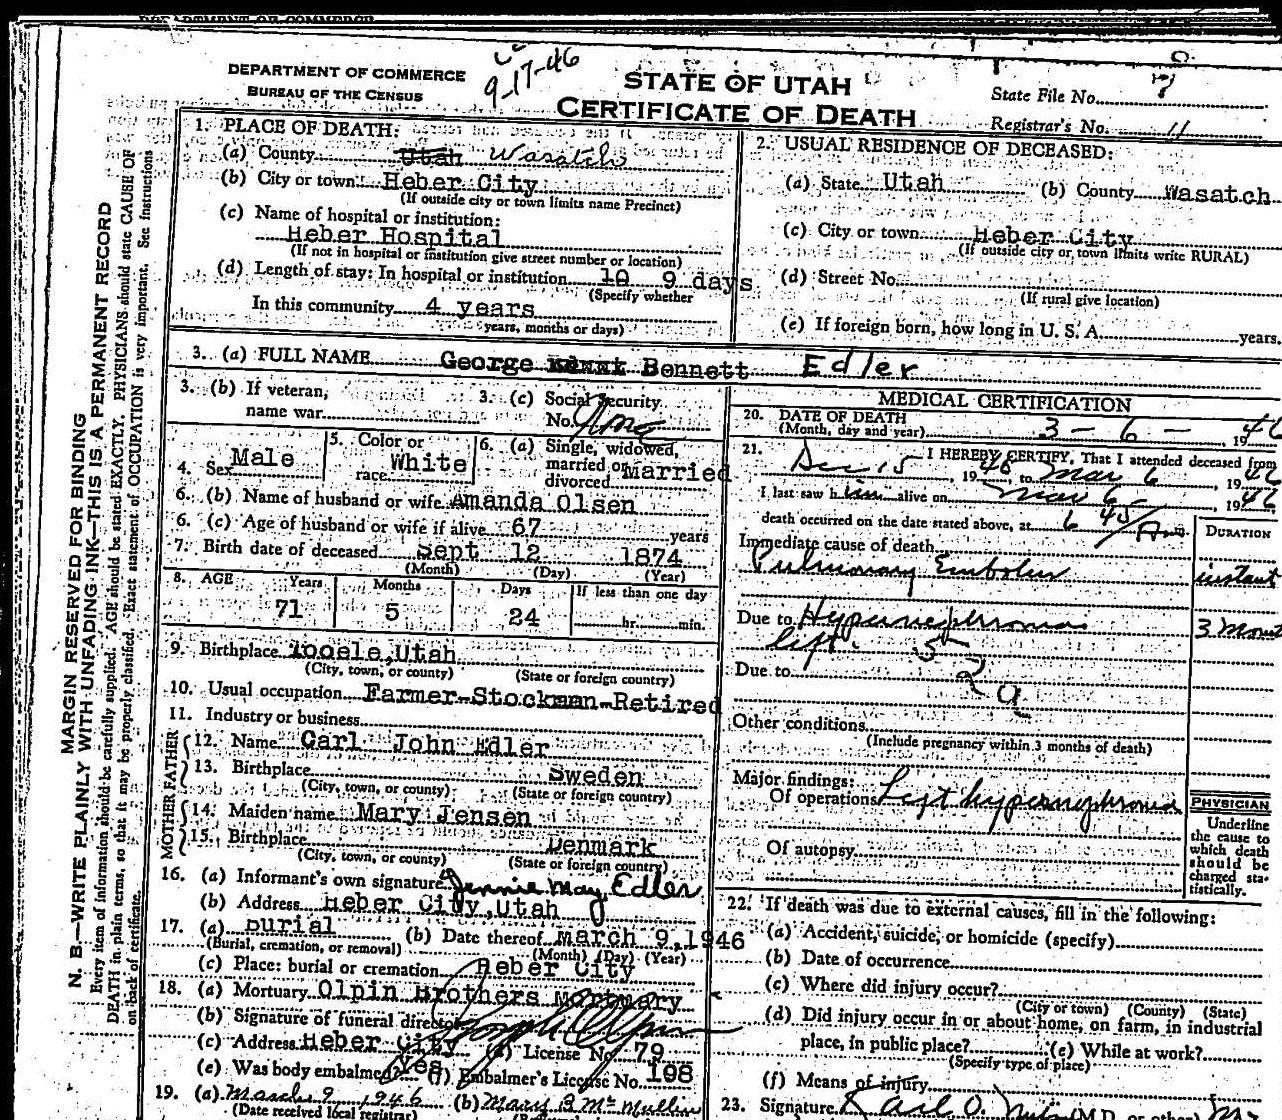 DEPARTMENT OF COMMERCE
BUREAU OF THE CENSUS
9-17-46
STATE OF UTAH
CERTIFICATE OF DEATH
State File No. 7
Registrar's No. 11
1. PLACE OF DEATH:
(a) County Utah Wasatch
(b) City or town Heber City
(If outside city or town limits name Precinct)
(c) Name of hospital or institution:
Heber Hospital
(If not in hospital or institution give street number or location)
(d) Length of stay: In hospital or institution 10 9 days
(Specify whether
In this community 4 years
years, months or days)
2. USUAL RESIDENCE OF DECEASED:
(a) State Utah (b) County Wasatch
(c) City or town Heber City
(If outside city or town limits write RURAL)
(d) Street No.
(If rural give location)
(e) If foreign born, how long in U. S. A. years.
3. (a) FULL NAME George Bennett Edler
3. (b) If veteran,
name war
3. (c) Social Security
No. None
4. Sex Male
5. Color or
race White
6. (a) Single, widowed,
married or
divorced Married
6. (b) Name of husband or wife Amanda Olsen
6. (c) Age of husband or wife if alive 67 years
7. Birth date of deceased Sept 12 1874
(Month) (Day) (Year)
8. AGE Years Months Days If less than one day
71 5 24 hr. min.
9. Birthplace Tooele, Utah
(City, town, or county) (State or foreign country)
10. Usual occupation Farmer-Stockman-Retired
11. Industry or business
FATHER
12. Name Carl John Edler
13. Birthplace Sweden
(City, town, or county) (State or foreign country)
MOTHER
14. Maiden name Mary Jensen
15. Birthplace Denmark
(City, town, or county) (State or foreign country)
16. (a) Informant's own signature Jennie May Edler
(b) Address Heber City, Utah
17. (a) Burial (b) Date thereof March 9, 1946
(Burial, cremation, or removal) (Month) (Day) (Year)
(c) Place: burial or cremation Heber City
18. (a) Mortuary Olpin Brothers Mortuary
(b) Signature of funeral director
(c) Address Heber City (d) License No. 79
(e) Was body embalmed? Yes (f) Embalmer's License No. 108
19. (a) March 9 1946 (b) Mary B. McMullin
(Date received local registrar)
MEDICAL CERTIFICATION
20. DATE OF DEATH
(Month, day and year) 3 - 6 - , 1946
21. I HEREBY CERTIFY, That I attended deceased from
Dec 15, 1945 to Mar 6, 1946
I last saw him alive on Mar 6, 1946
death occurred on the date stated above, at 6 45 A m.
DURATION
Immediate cause of death
Pulmonary Embolus instant
Due to Hypernephroma 3 Mont
left
52a
Due to
Other conditions
(Include pregnancy within 3 months of death)
Major findings:
Of operations Left hypernephroma
Of autopsy
PHYSICIAN
Underline
the cause to
which death
should be
charged sta-
tistically.
22. If death was due to external causes, fill in the following:
(a) Accident, suicide, or homicide (specify)
(b) Date of occurrence
(c) Where did injury occur?
(City or town) (County) (State)
(d) Did injury occur in or about home, on farm, in industrial
place, in public place? (e) While at work?
(Specify type of place)
(f) Means of injury
23. Signature Karl O. (M.D. or other)
MARGIN RESERVED FOR BINDING
N. B.—WRITE PLAINLY WITH UNFADING INK—THIS IS A PERMANENT RECORD
Every item of information should be carefully supplied. AGE should be stated EXACTLY. PHYSICIANS should state CAUSE OF
DEATH in plain terms, so that it may be properly classified. Exact statement of OCCUPATION is very important. See Instructions
on back of certificate.